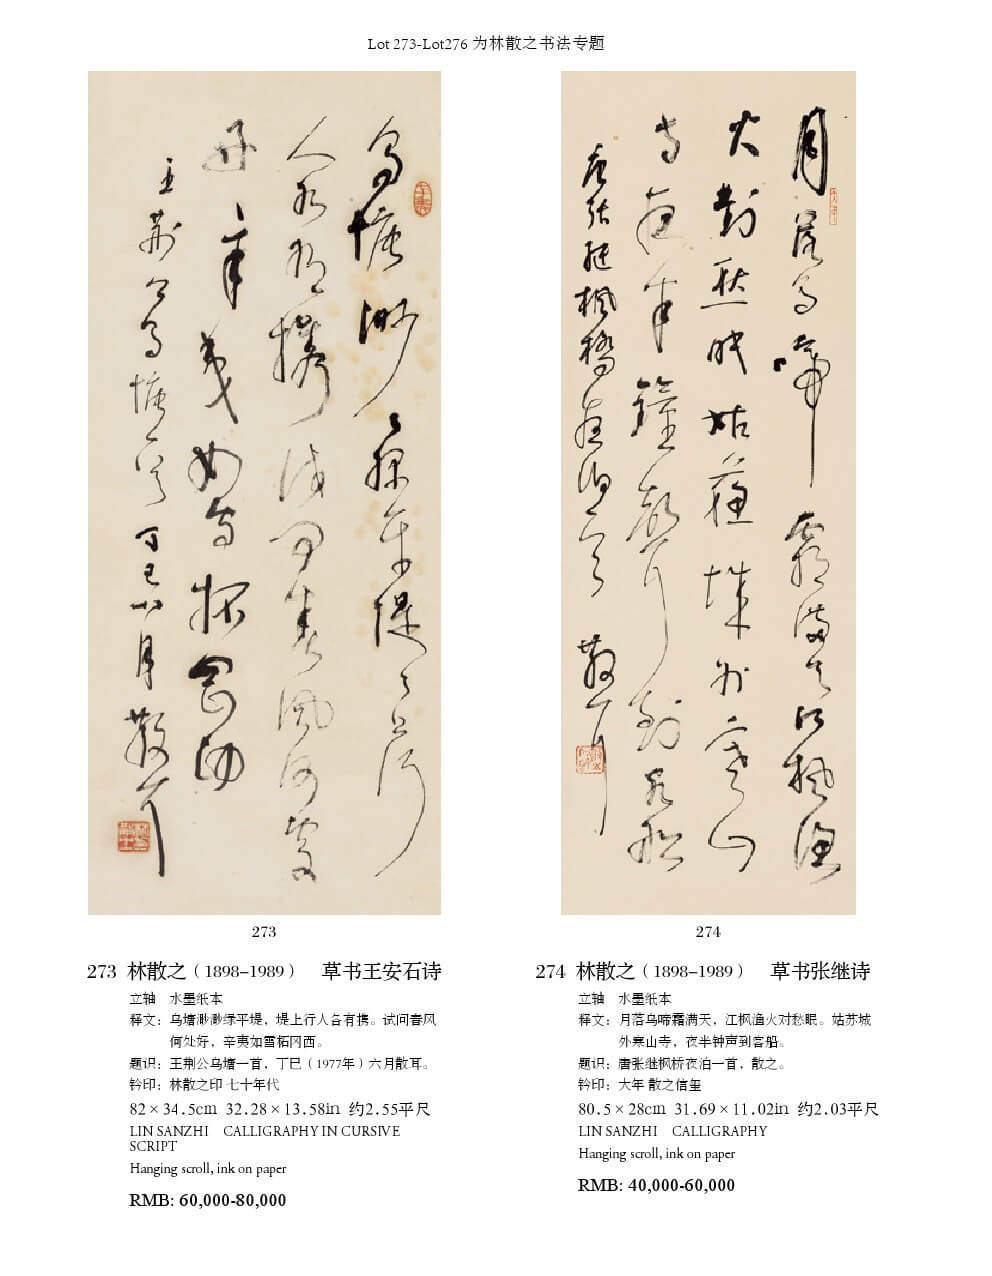 Lot 273-Lot276 为林散之书法专题
乌塘渺渺绿平堤堤上行
人各有携试问春风何处
好辛夷如雪柘冈西
王荆公乌塘一首丁巳六月散耳
月落乌啼霜满天江枫渔
火对愁眠姑苏城外寒山
寺夜半钟声到客船
唐张继枫桥夜泊一首散耳
273
274
273 林散之（1898-1989） 草书王安石诗
立轴 水墨纸本
释文：乌塘渺渺绿平堤，堤上行人各有携。试问春风
何处好，辛夷如雪柘冈西。
题识：王荆公乌塘一首，丁巳（1977年）六月散耳。
钤印：林散之印 七十年代
82×34.5cm 32.28×13.58in 约2.55平尺
LIN SANZHI CALLIGRAPHY IN CURSIVE
SCRIPT
Hanging scroll, ink on paper
RMB: 60,000-80,000
274 林散之（1898-1989） 草书张继诗
立轴 水墨纸本
释文：月落乌啼霜满天，江枫渔火对愁眠。姑苏城
外寒山寺，夜半钟声到客船。
题识：唐张继枫桥夜泊一首，散之。
钤印：大年 散之信玺
80.5×28cm 31.69×11.02in 约2.03平尺
LIN SANZHI CALLIGRAPHY
Hanging scroll, ink on paper
RMB: 40,000-60,000